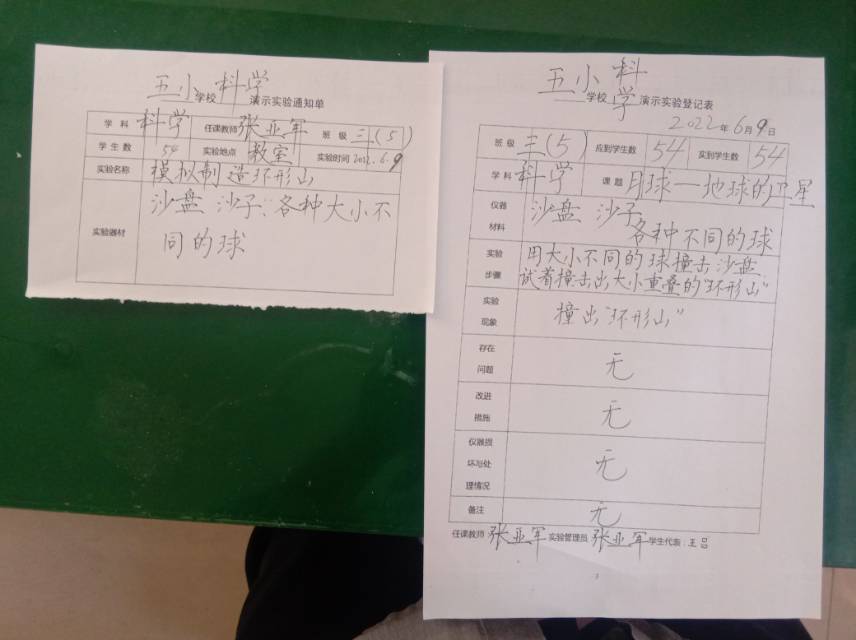 五小学校 科学 演示实验通知单
学科 科学 任课教师 张亚军 班级 三(5)
学生数 54 实验地点 教室 实验时间 2022.6.9
实验名称 模拟制造环形山
实验器材 沙盘 沙子、各种大小不
同的球
五小学校 科学 演示实验登记表
2022年6月9日
班级 三(5) 应到学生数 54 实到学生数 54
学科 科学 课题 月球—地球的卫星
仪器材料 沙盘 沙子
各种不同的球
实验步骤 用大小不同的球撞击沙盘,
试着撞击出大小重叠的"环形山"
实验现象 撞出"环形山"
存在问题 无
改进措施 无
仪器损坏与处理情况 无
备注 无
任课教师:张亚军 实验管理员:张亚军 学生代表:王吕